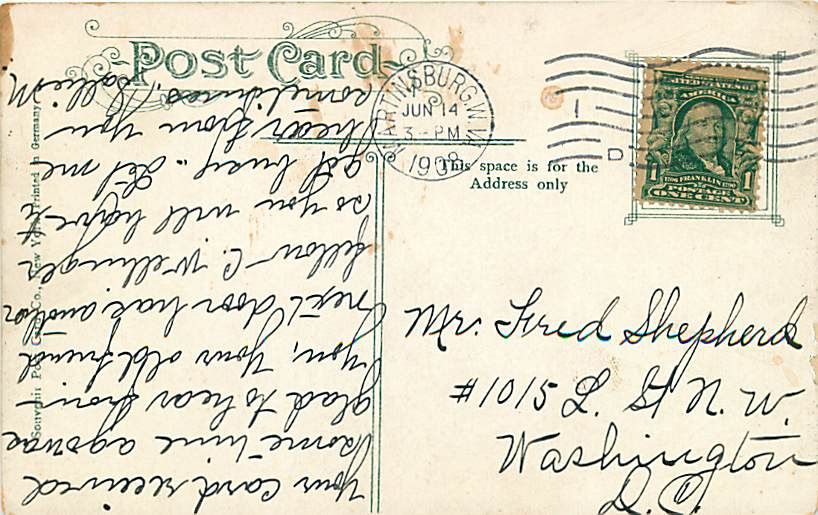 Post Card
MARTINSBURG, W. VA.
JUN 14
3 - PM
1908
1
D
UNITED STATES OF
AMERICA
1706 FRANKLIN 1790
1 POSTAGE 1
ONE CENT
This space is for the
Address only
Mr. Fred Shepherd
#1015 L. St N. W.
Washington
D.C.
Your card received
some time ago was
glad to hear from
you, your old friend
next door has another
fellow C. Wellinger
so you will have to
get busy. Let me
hear from you
sometimes. Sallie M
Souvenir Post Card Co., New York Printed in Germany